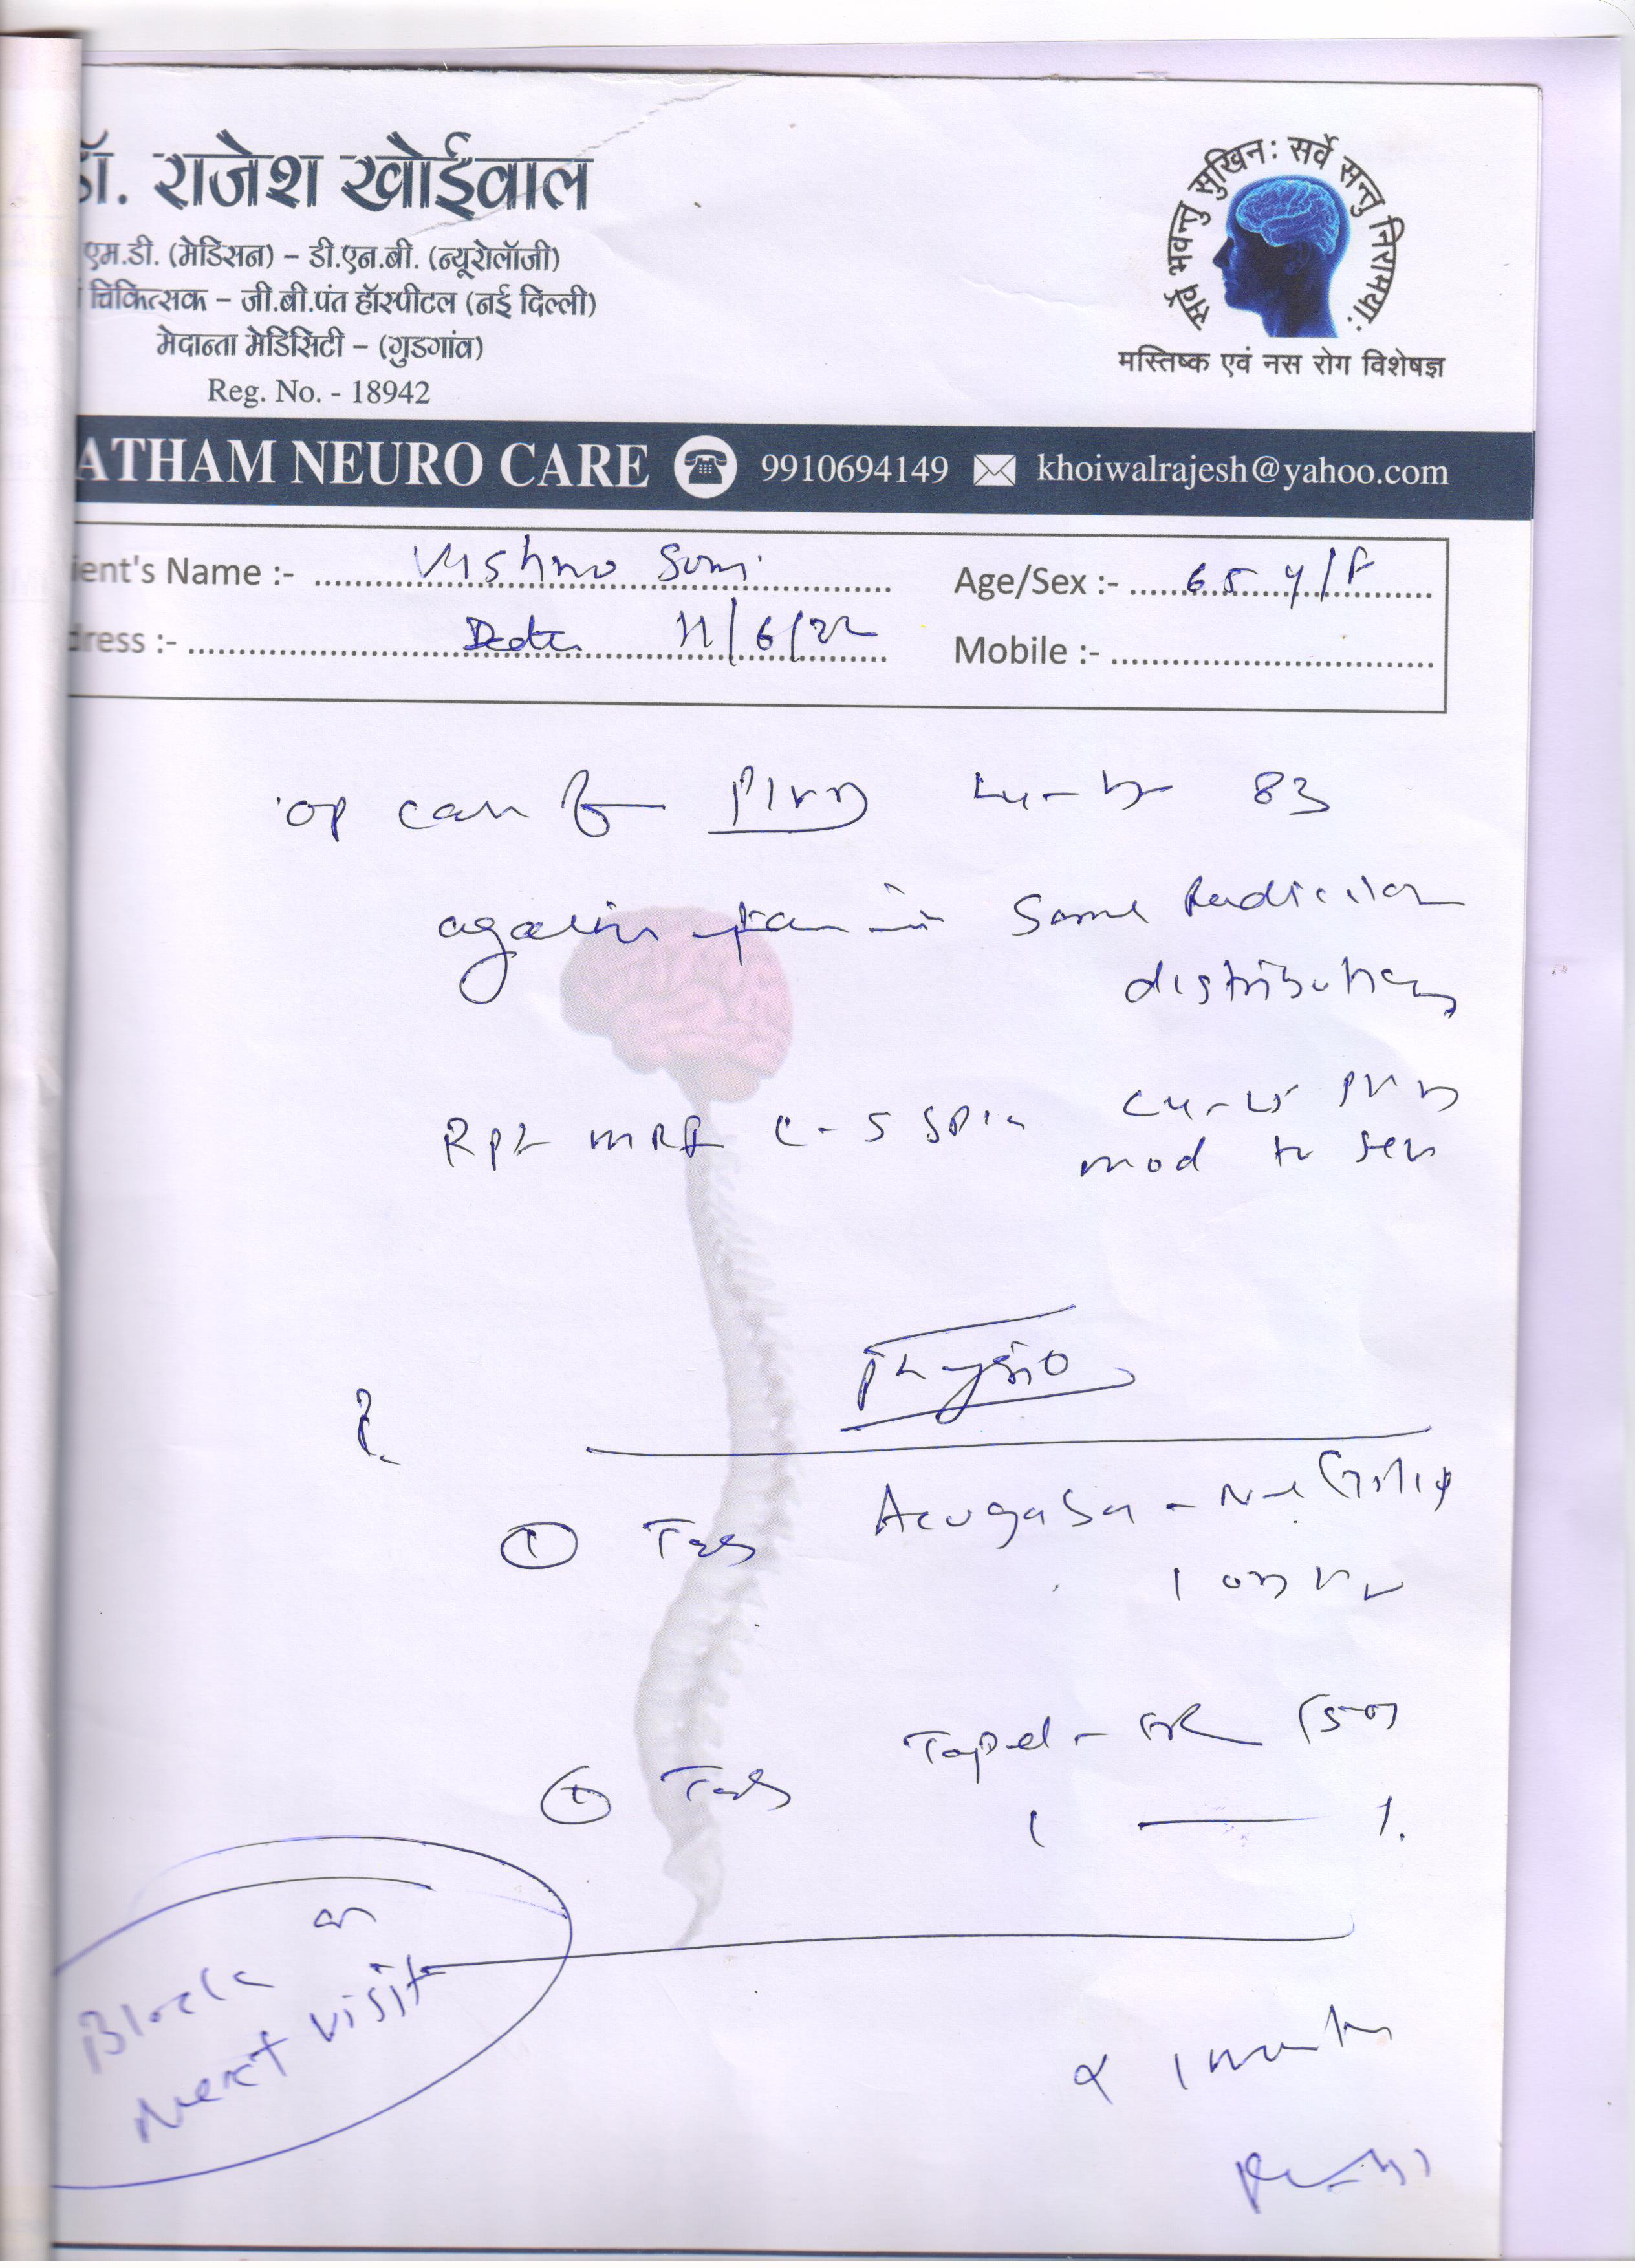 डॉ. राजेश खोईवाल
एम.डी. (मेडिसन) – डी.एन.बी. (न्यूरोलॉजी)
चिकित्सक – जी.बी.पंत हॉस्पीटल (नई दिल्ली)
मेदान्ता मेडिसिटी – (गुडगांव)
Reg. No. - 18942
सर्वे भवन्तु सुखिनः सर्वे सन्तु निरामयाः
मस्तिष्क एवं नस रोग विशेषज्ञ
ATHAM NEURO CARE 9910694149 khoiwalrajesh@yahoo.com
ient's Name :- Vishno Soni Age/Sex :- 65 y/F
dress :- Date 11/6/22 Mobile :-
op case for PIVD
again pain in same Radicular
distribution
Rpt MRI spine PIVD
mod to sev
Physio
① Tab
Tab Tapal - (50)
1 — 1
Block on
Next visit
1 month